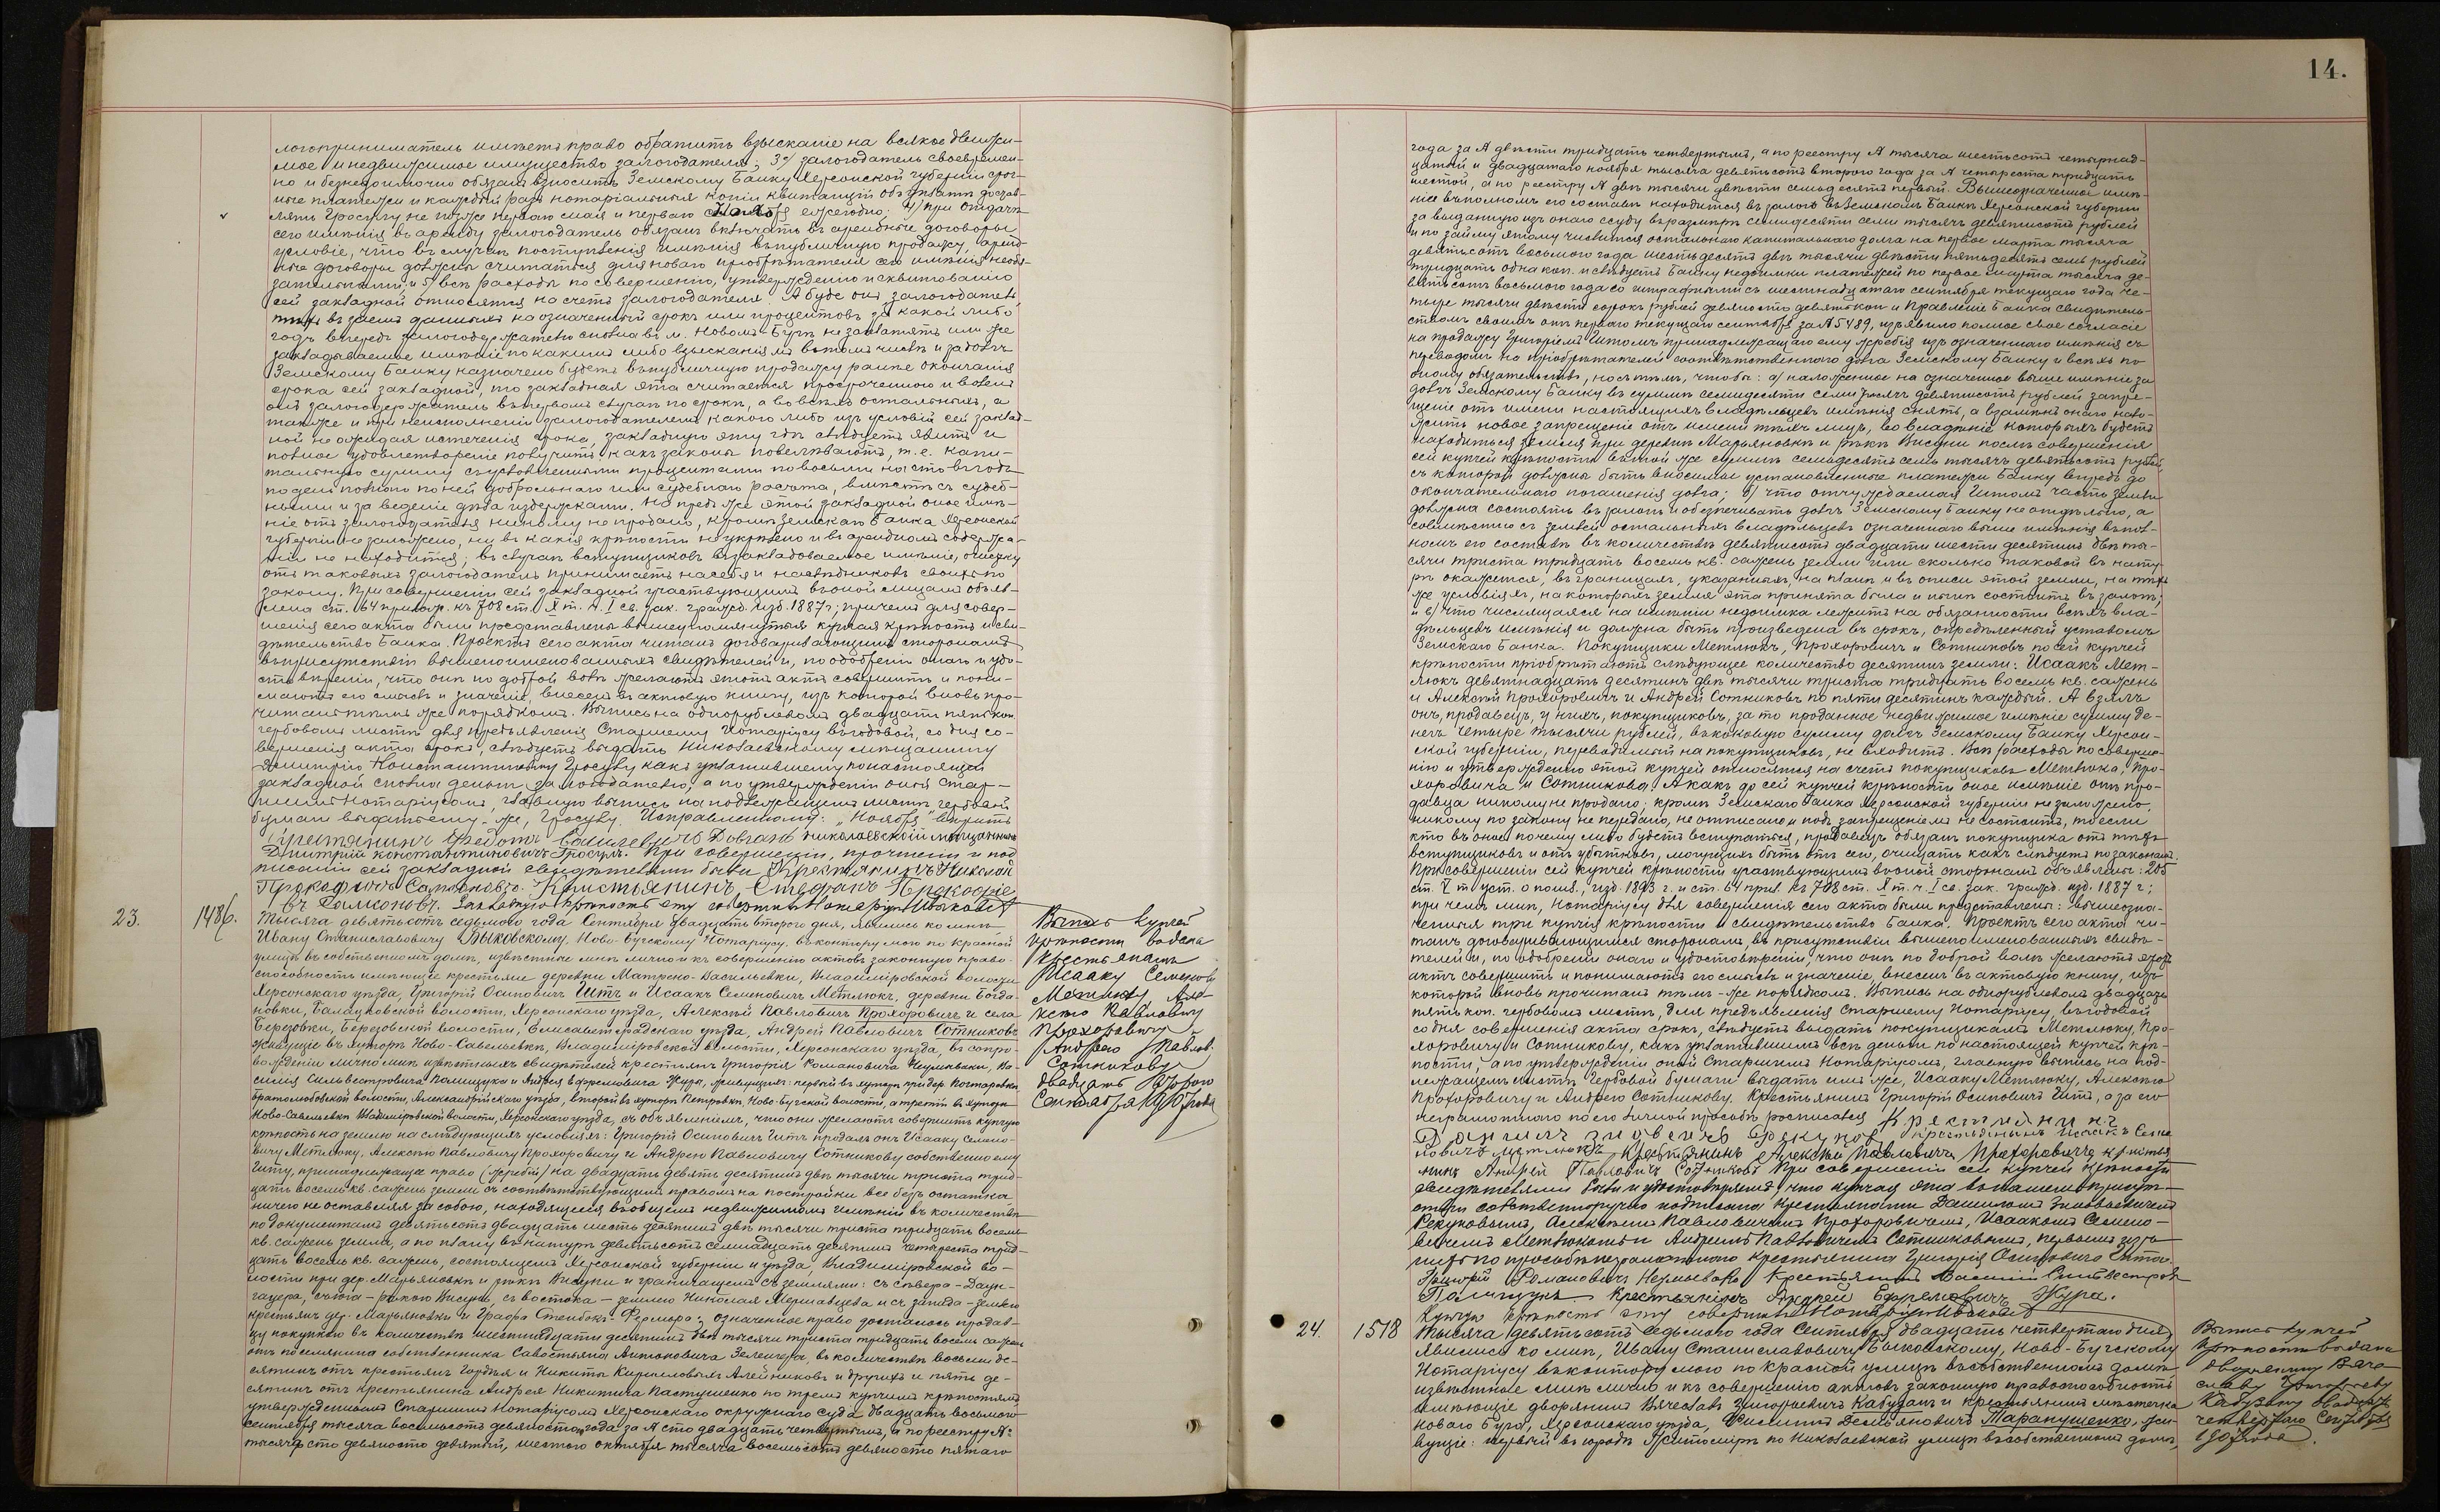 14.
логоприниматель имѣетъ право обратить взысканіе на всякое движи-
мое и недвижимое имущество залогодателя; 3/ залогодатель своевремен-
но и безнедоимочно обязанъ вносить Земскому Банку Херсонской губерніи сроч-
ные платежи и каждый разъ нотаріальныя копіи квитанцій объ уплатѣ достав-
лять Гросулу не позже перваго мая и перваго Ноября ежегодно; 4/ при отдачѣ
сего имѣнія въ аренду залогодатель обязанъ включать въ арендные договоры
условіе, что въ случаѣ поступленія имѣнія въ публичную продажу, аренд-
ные договоры должны считаться для новаго пріобрѣтателя сего имѣнія необя-
зательными, и 5/ всѣ расходы по совершенію, утвержденію и сквитованію
сей закладной относятся на счетъ залогодателя. А буде онъ залогодатель
въ заемъ данныхъ на означенный срокъ или процентовъ за какой либо
годъ впередъ залогодержателю сполна въ м. Новомъ-Бугѣ не заплатитъ или же
закладываемое имѣніе по какимъ либо взысканіямъ въ томъ числѣ и за долгъ
Земскому Банку назначено будетъ въ публичную продажу ранѣе окончанія
срока сей закладной, то закладная эта считается просроченною и воленъ
онъ залогодержатель въ первомъ случаѣ по срокѣ, а во всѣхъ остальныхъ, а
также и при неисполненіи залогодателемъ какого либо изъ условій сей заклад-
ной не ожидая истеченія срока, закладную эту гдѣ слѣдуетъ явить и
полное удовлетвореніе получить какъ законы повелѣваютъ, т.е. капи-
тальную сумму съ условленными процентами по восьми на сто въ годъ
по день полнаго по ней добровольнаго или судебнаго расчета, вмѣстѣ съ судеб-
ными и за веденіе дѣла издержками. Напредь же этой закладной оное имѣ-
ніе отъ залогодателя никому не продано, кромѣ Земскаго Банка Херсонской
губерніи не заложено, ни въ какія крѣпости не укрѣплено и въ арендномъ содержа-
ніи не находится; въ случаѣ вступщиковъ въ закладываемое имѣніе, очистку
отъ таковыхъ залогодатель принимаетъ на себя и наслѣдниковъ своихъ по
закону. При совершеніи сей закладной участвующимъ въ оной лицамъ объяв-
лена ст. 64 прилож. къ 708 ст. X т. ч. I св. зак. гражд. изд. 1887 г; причемъ для совер-
шенія сего акта были представлены вышеупомянутыя купчая крѣпость и сви-
дѣтельство Банка. Проектъ сего акта читанъ договаривающимся сторонамъ
въ присутствіи вышепоименованныхъ свидѣтелей и, по одобреніи онаго и удо-
стовѣреніи, что они по доброй волѣ желаютъ этотъ актъ совершить и пони-
маютъ его смыслъ и значеніе, внесенъ въ актовую книгу, изъ которой вновь про-
читанъ тѣмъ же порядкомъ. Выпись на однорублевомъ двадцати пяти коп.
гербовомъ листѣ для предъявленія Старшему Нотаріусу въ годовой, со дня со-
вершенія акта срокъ, слѣдуетъ выдать Николаевскому мѣщанину
Дмитрію Константиновичу Гросулу какъ уплатившему по настоящей
закладной сполна деньги залогодателю, а по утвержденіи оной Стар-
шимъ Нотаріусомъ, главную выпись на подлежащемъ листѣ гербовой
бумаги выдать ему-же, Гросулу. Исправленному: „Ноября" вѣрить
Крестьянинъ Федотъ Савичевичъ Довгань николаевскій мѣщанинъ
Дмитрій Константиновичъ Гросулъ. При совершеніи, прочтеніи и под
писаніи сей закладной свидѣтелями были Крестьянинъ Николай
Прокофіевъ Самсоновъ. Крестьянинъ Степанъ Прокофіе
въ Самсоновъ. Закладную крѣпость эту совершилъ Нотаріусъ Быковскій
23. 1486. Тысяча девятьсотъ седьмого года Сентября двадцать второго дня, явились ко мнѣ
Ивану Станиславовичу Быковскому, Ново-Бугскому Нотаріусу, въ контору мою по Красной
улицѣ въ собственномъ домѣ, извѣстные мнѣ лично и къ совершенію актовъ законную право-
способность имѣющіе крестьяне деревни Матрено-Васильевки, Владиміровской волости
Херсонскаго уѣзда, Григорій Осиповичъ Гитъ и Исаакъ Семеновичъ Метлюкъ, деревни Богда-
новки, Балацковской волости, Херсонскаго уѣзда, Алексѣй Павловичъ Прохоровичъ и села
Березовки, Березовской волости, Елисаветградскаго уѣзда, Андрей Павловичъ Сотниковъ
живущіе въ хуторѣ Ново-Савельевкѣ, Владиміровской волости, Херсонскаго уѣзда, въ сопро-
вожденіи лично мнѣ извѣстныхъ свидѣтелей крестьянъ Григорія Романовича Неумываки, Ва-
силія Сильвестровича Полищука и Андрея Ефремовича Журы, живущихъ: первый въ хуторѣ при дер. Костаровкѣ
Братолюбовской волости, Александрійскаго уѣзда, второй въ хуторѣ Петровкѣ, Ново-Бугской волости, а третій въ хуторѣ
Ново-Савельевкѣ Владиміровской волости, Херсонскаго уѣзда, съ объявленіемъ, что они желаютъ совершить купчую
крѣпость на землю на слѣдующихъ условіяхъ: Григорій Осиповичъ Гитъ продалъ онъ Исааку Семено-
вичу Метлюку, Алексѣю Павловичу Прохоровичу и Андрею Павловичу Сотникову собственно ему
Гиту, принадлежащее право (жребій) на двадцать девять десятинъ двѣ тысячи триста трид-
цать восемь кв. сажень земли съ соотвѣтствующимъ правомъ на постройки все безъ остатка
ничего не оставляя за собою, находящееся въ общемъ недвижимомъ имѣніи въ количествѣ
по документамъ девятьсотъ двадцать шесть десятинъ двѣ тысячи триста тридцать восемь
кв. сажень земли, а по плану въ натурѣ девятьсотъ семнадцать десятинъ четыреста трид-
цать восемь кв. сажень, состоящемъ Херсонской губерніи и уѣзда, Владиміровской во-
лости при дер. Марьяновкѣ и рѣкѣ Висуни и граничащемъ съ землями: съ сѣвера - Даун-
гауера, съ юга - рѣкою Висунь, съ востока - землею Николая Мершавцева и съ запада - землею
крестьянъ дер. Марьяновки и Графа Стенбокъ-Фермора; означенное право досталось продав-
цу покупкою въ количествѣ шестнадцати десятинъ двѣ тысячи триста тридцать восемь сажень
отъ поселянина собственника Савостьяна Антоновича Зеленгера, въ количествѣ восьми де-
сятинъ отъ крестьянъ Гордѣя и Никиты Кирилловыхъ Алейниковъ и другихъ и пять де-
сятинъ отъ крестьянина Андрея Никитича Пастушенко по тремъ купчимъ крѣпостямъ
утвержденнымъ Старшимъ Нотаріусомъ Херсонскаго окружнаго суда двадцать восьмого
сентября тысяча восемьсотъ девяностого года за № сто двадцать четвертымъ, а по реестру №
тысяча сто девяносто девятый, шестого октября тысяча восемьсотъ девяносто пятаго
Выпись купчей
крѣпости выдана
крестьянамъ
Исааку Семенов
Метлюку, Але-
ксѣю Павловичу
Прохоровичу
Андрею Павлов.
Сотникову
двадцать второго
Сентября 1907 года
года за № двѣсти тридцать четвертымъ, а по реестру № тысяча шестьсотъ четырнад-
цатый и двадцатаго ноября тысяча девятьсотъ второго года за № четыреста тридцать
шестой, а по реестру № двѣ тысячи двѣсти семьдесятъ первый. Вышеозначенное имѣ-
ніе въ полномъ его составѣ находится въ залогѣ въ Земскомъ Банкѣ Херсонской губерніи
за выданную изъ онаго ссуду въ размѣрѣ семидесяти семи тысячъ девятисотъ рублей
и по займу этому числится остальнаго капитальнаго долга на первое марта тысяча
девятьсотъ восьмого года шестьдесятъ двѣ тысячи двѣсти пятьдесятъ семь рублей
тридцать одна коп. и слѣдуетъ Банку недоимки платежей по первое марта тысяча де-
вятьсотъ восьмого года со штрафными съ шестнадцатаго сентября текущаго года че-
тыре тысячи двѣсти сорокъ рублей девяносто девять коп. и Правленіе Банка свидѣтель-
ствомъ своимъ отъ перваго текущаго сентября за № 5489, изъявило полное свое согласіе
на продажу Григоріемъ Гитомъ принадлежащаго ему жребія изъ означеннаго имѣнія съ
переводомъ на пріобрѣтателей соотвѣтственнаго долга Земскому Банку и всѣхъ по
оному обязательствъ, но съ тѣмъ, чтобы: а) наложенное на означенное выше имѣніе за
долгъ Земскому Банку въ суммѣ семидесяти семи тысячъ девятисотъ рублей запре-
щеніе отъ имени настоящихъ владѣльцевъ имѣнія снять, а взамѣнъ онаго нало-
жить новое запрещеніе отъ имени тѣхъ лицъ, во владѣніе которыхъ будетъ
находиться земля при деревнѣ Марьяновкѣ и рѣкѣ Висуни послѣ совершенія
сей купчей крѣпости въ той же суммѣ семьдесятъ семь тысячъ девятьсотъ рублей,
съ которой должны быть вносимы установленные платежи Банку впредь до
окончательнаго погашенія долга; б) что отчуждаемая Гитомъ часть земли
должна состоять въ залогѣ и обезпечивать долгъ Земскому Банку не отдѣльно, а
совмѣстно съ землей остальныхъ владѣльцевъ означеннаго выше имѣнія въ пол-
номъ его составѣ въ количествѣ девятисотъ двадцати шести десятинъ двѣ ты-
сячи триста тридцать восемь кв. сажень земли или сколько таковой въ нату-
рѣ окажется, въ границахъ, указанныхъ на планѣ и въ описи этой земли, на тѣхъ
же условіяхъ, на которыхъ земля эта принята была и нынѣ состоитъ въ залогѣ;
и в) что числящаяся на имѣніи недоимка лежитъ на обязанности всѣхъ вла-
дѣльцевъ имѣнія и должна быть произведена въ срокъ, опредѣленный уставомъ
Земскаго Банка. Покупщики Метлюкъ, Прохоровичъ и Сотниковъ по сей купчей
крѣпости пріобрѣтаютъ слѣдующее количество десятинъ земли: Исаакъ Мет-
люкъ девятнадцать десятинъ двѣ тысячи триста тридцать восемь кв. сажень
и Алексѣй Прохоровичъ и Андрей Сотниковъ по пяти десятинъ каждый. А взялъ
онъ, продавецъ, у нихъ, покупщиковъ, за то проданное недвижимое имѣніе сумму де-
негъ четыре тысячи рублей, въ каковую сумму долгъ Земскому Банку Херсон-
ской губерніи, переводимый на покупщиковъ, не входитъ. Всѣ расходы по соверше-
нію и утвержденію этой купчей относятся на счетъ покупщиковъ Метлюка, Про-
хоровича и Сотникова. А какъ до сей купчей крѣпости оное имѣніе отъ про-
давца никому не продано; кромѣ Земскаго Банка Херсонской губерніи не заложено,
никому по закону не передано, не отписано и подъ запрещеніемъ не состоитъ, то если
кто въ оное почему либо будетъ вступаться, продавецъ обязанъ покупщика отъ тѣхъ
вступщиковъ и отъ убытковъ, могущихъ быть отъ сего, очищать какъ слѣдуетъ по законамъ.
При совершеніи сей купчей крѣпости участвующимъ въ оной сторонамъ объявлены: 205
ст. V т. уст. о пошл., изд. 1893 г. и ст. 64 прил. къ 708 ст. X т. ч. I св. зак. гражд. изд. 1887 г;
при чемъ мнѣ, Нотаріусу для совершенія сего акта были представлены: вышеозна-
ченныя три купчія крѣпости и свидѣтельство Банка. Проектъ сего акта чи-
танъ договаривающимся сторонамъ, въ присутствіи вышепоименованныхъ свидѣ-
телей и, по одобреніи онаго и удостовѣреніи, что они по доброй волѣ желаютъ этотъ
актъ совершить и понимаютъ его смыслъ и значеніе, внесенъ въ актовую книгу, изъ
которой вновь прочитанъ тѣмъ-же порядкомъ. Выпись на однорублевомъ двадцати
пяти коп. гербовомъ листѣ, для предъявленія Старшему Нотаріусу, въ годовой
со дня совершенія акта срокъ, слѣдуетъ выдать покупщикамъ Метлюку, Про-
хоровичу и Сотникову, какъ уплатившимъ всѣ деньги по настоящей купчей крѣ-
пости, а по утвержденіи оной Старшимъ Нотаріусомъ, главную выпись на под-
лежащемъ листѣ гербовой бумаги выдать имъ же, Исааку Метлюку, Алексѣю
Прохоровичу и Андрею Сотникову. Крестьянинъ Григорій Осиповичъ Гитъ, а за его
неграмотнаго по его личной просьбѣ росписался Крестьянинъ
крестьянинъ Исаакъ Семе
новичъ Метлюкъ Крестьянинъ Алексѣй Павловичъ Прохоровичъ крестья
нинъ Андрей Павловичъ Сотниковъ При совершеніи сей купчей крѣпости
свидѣтелями были и удостовѣряемъ, что купчая эта въ нашемъ присут-
ствіи собственноручно подписана крестьянами Даниломъ
Рекуновымъ, Алексѣемъ Павловичемъ Прохоровичемъ, Исаакомъ Семено-
вичемъ Метлюкомъ и Андреемъ Павловичемъ Сотниковымъ, первымъ изъ
нихъ по просьбѣ неграмотнаго крестьянина Григорія Осиповича Гита.
Григорій Романовичъ Неумывака Крестьянинъ Василій Сильвестров
Полищукъ Крестьянинъ Андрей Ефремовичъ Жура.
Купчую крѣпость эту совершилъ Нотаріусъ Быковскій
24. 1518 Тысяча девятьсотъ седьмого года Сентября двадцать четвертаго дня,
явились ко мнѣ, Ивану Станиславовичу Быковскому, Ново-Бугскому
Нотаріусу въ контору мою по Красной улицѣ въ собственномъ домѣ
извѣстные мнѣ лично и къ совершенію актовъ законную правоспособность
имѣющіе дворянинъ Вячеславъ Григорьевичъ Кабузанъ и крестьянинъ мѣстечка
Новаго Буга, Херсонскаго уѣзда, Филиппъ Демьяновичъ Таранущенко, жи-
вущіе: первый въ городѣ Житомірѣ по Николаевской улицѣ въ собственномъ домѣ,
Выпись купчей
крѣпости выдана
дворянину Вяче
славу Григорьеву
Кабузану двадцать
четвертаго Сентября
1907 года.